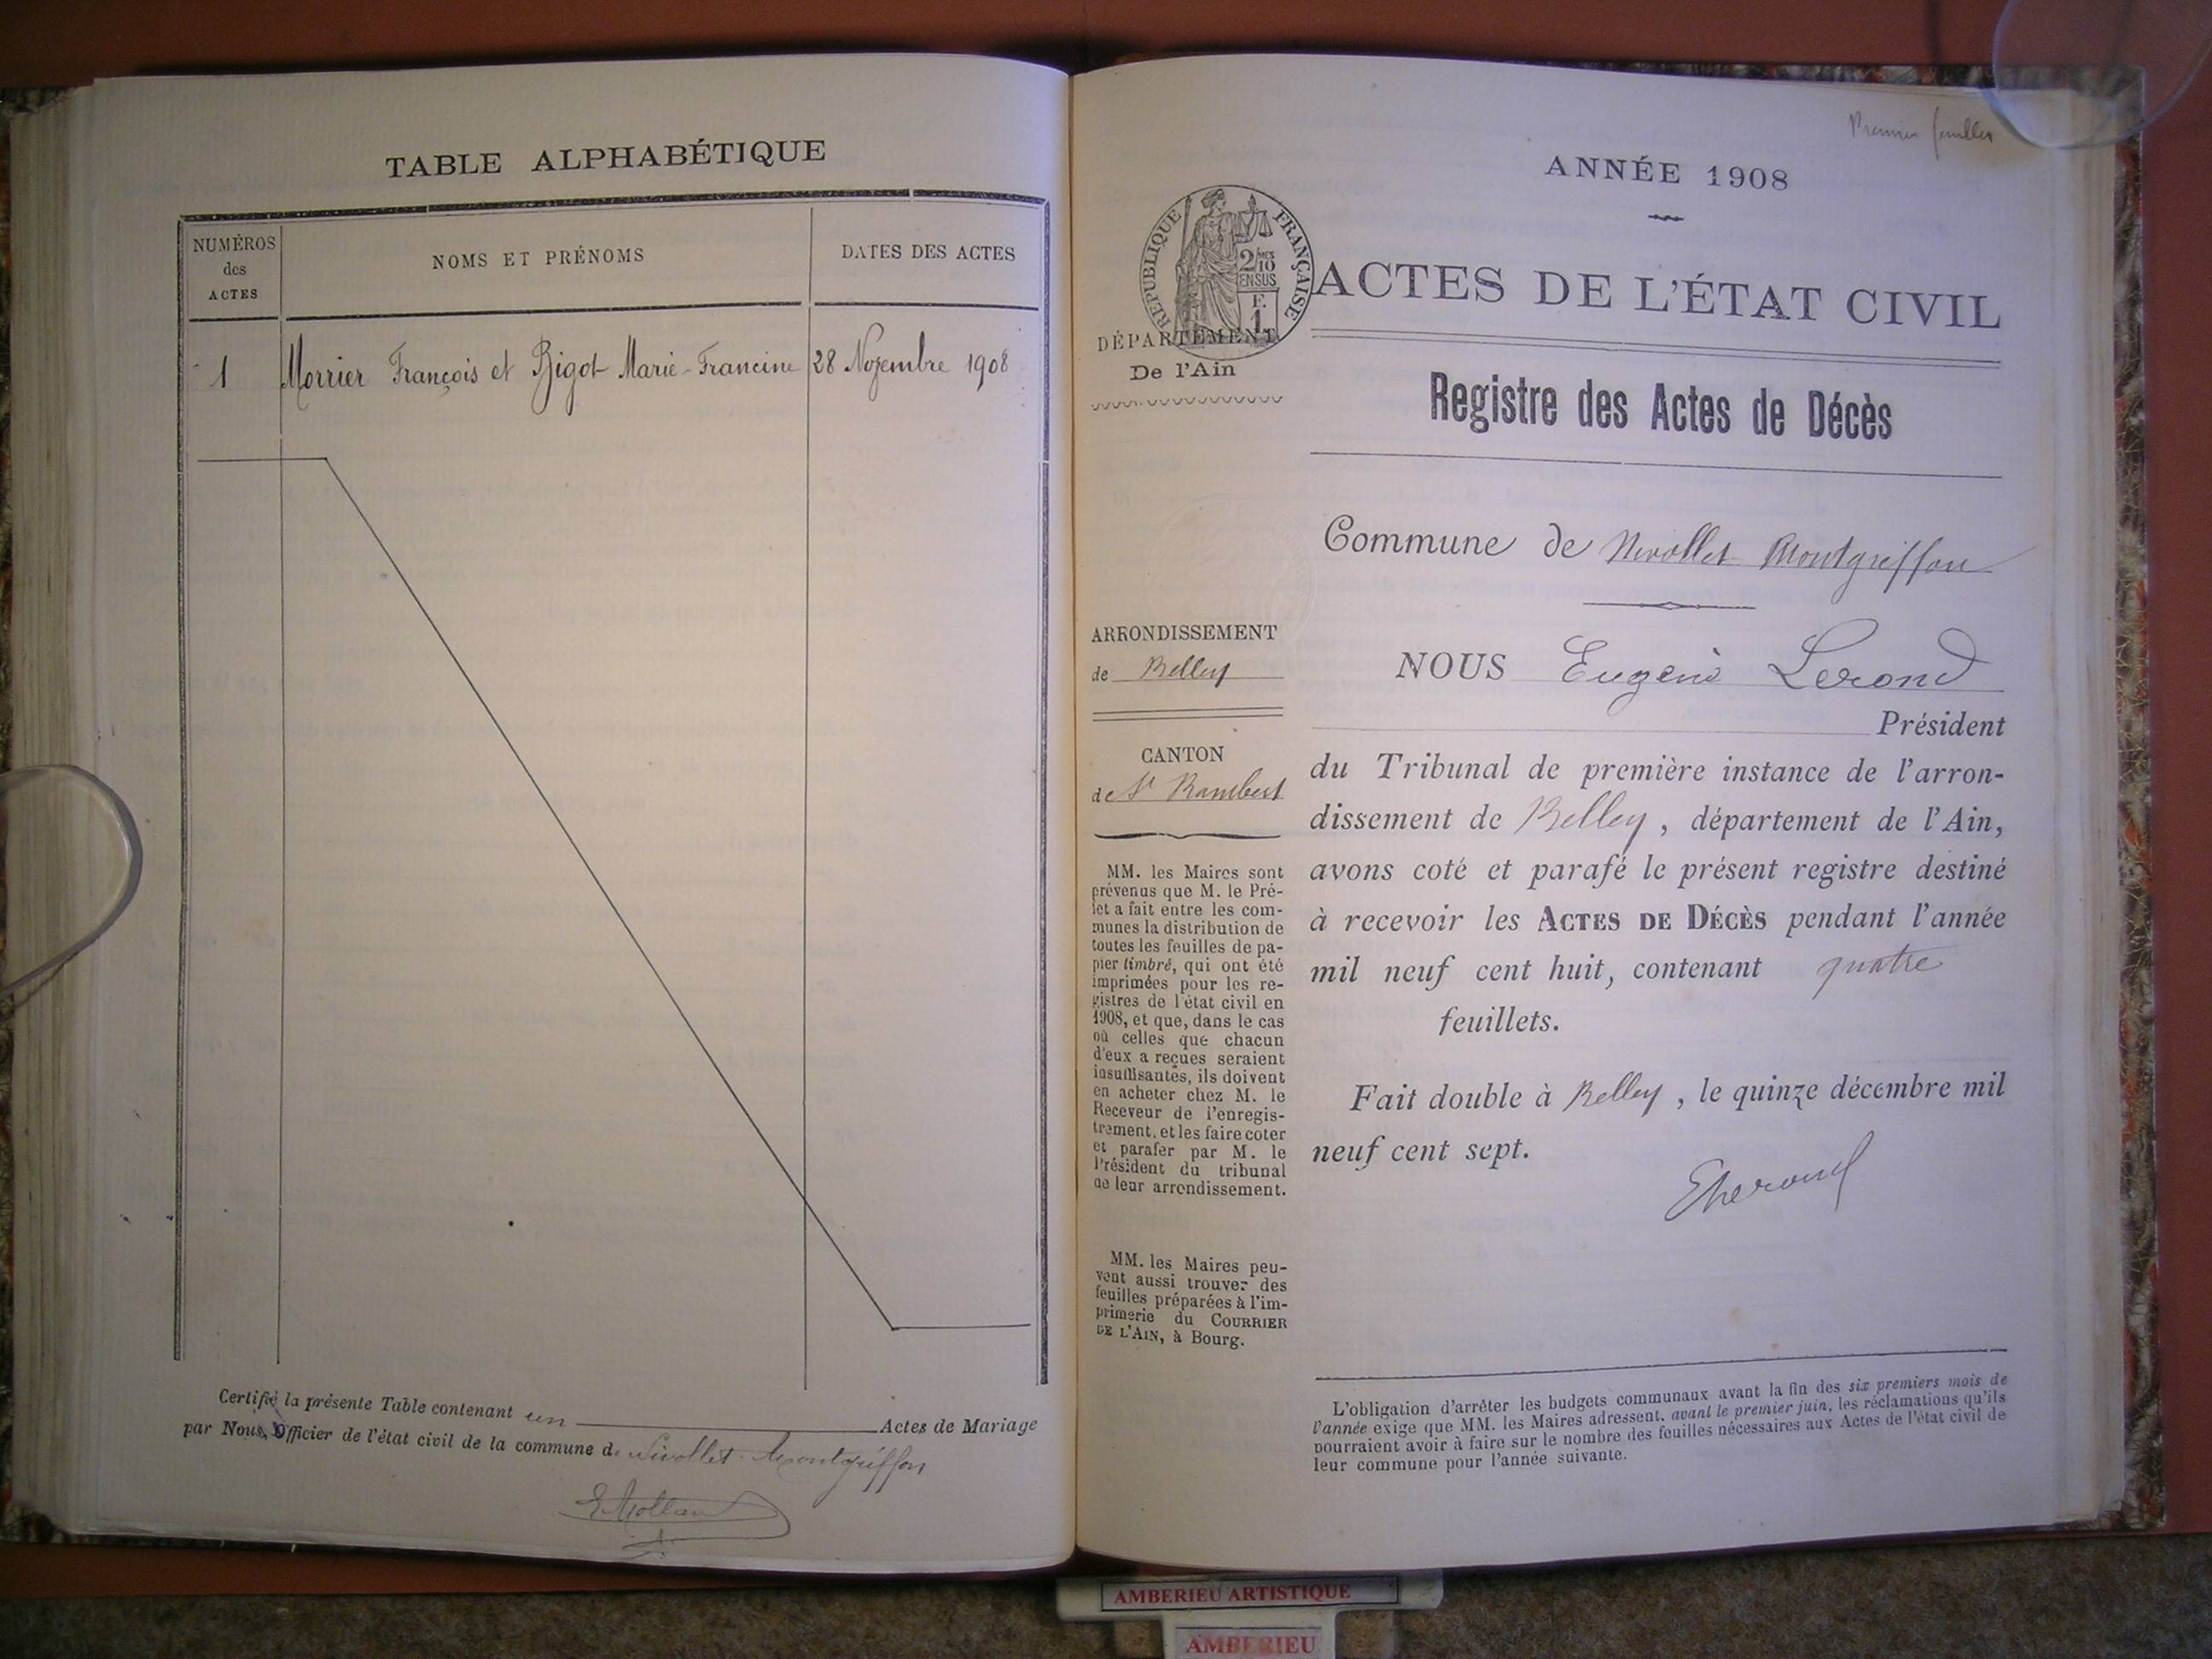 TABLE ALPHABÉTIQUE
NUMÉROS
des
ACTES
NOMS ET PRÉNOMS
DATES DES ACTES
1 Morrier François et Bigot Marie-Francine 28 Novembre 1908
Certifié la présente Table contenant un Actes de Mariage
par Nous, Officier de l'état civil de la commune de Nivollet-Montgriffon
Premier feuillet
ANNÉE 1908
RÉPUBLIQUE FRANÇAISE
2/10 MES
EN SUS
F.
1
ACTES DE L'ÉTAT CIVIL
DÉPARTEMENT
De l'Ain
Registre des Actes de Décès
Commune de Nivollet Montgriffon
ARRONDISSEMENT
de Belley
CANTON
de St Rambert
MM. les Maires sont
prévenus que M. le Pré-
fet a fait entre les com-
munes la distribution de
toutes les feuilles de pa-
pier timbré, qui ont été
imprimées pour les re-
gistres de l'état civil en
1908, et que, dans le cas
où celles que chacun
d'eux a reçues seraient
insuffisantes, ils doivent
en acheter chez M. le
Receveur de l'enregis-
trement, et les faire coter
et parafer par M. le
Président du tribunal
de leur arrondissement.
MM. les Maires peu-
vent aussi trouver des
feuilles préparées à l'im-
primerie du COURRIER
DE L'AIN, à Bourg.
NOUS Eugène Lerond
Président
du Tribunal de première instance de l'arron-
dissement de Belley, département de l'Ain,
avons coté et parafé le présent registre destiné
à recevoir les ACTES DE DÉCÈS pendant l'année
mil neuf cent huit, contenant quatre
feuillets.
Fait double à Belley, le quinze décembre mil
neuf cent sept.
L'obligation d'arrêter les budgets communaux avant la fin des six premiers mois de
l'année exige que MM. les Maires adressent, avant le premier juin, les réclamations qu'ils
pourraient avoir à faire sur le nombre des feuilles nécessaires aux Actes de l'état civil de
leur commune pour l'année suivante.
AMBERIEU ARTISTIQUE
AMBERIEU